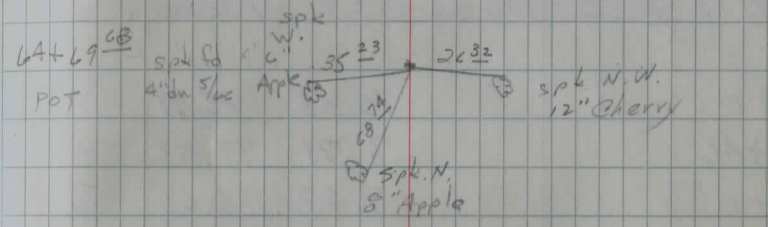 64+69 68
POT
spk fd
4" dn 5/66
spk
W.
6"
Apple
35 23
26 32
spk N.W.
12" Cherry
68 74
Spk. N.
8" Apple